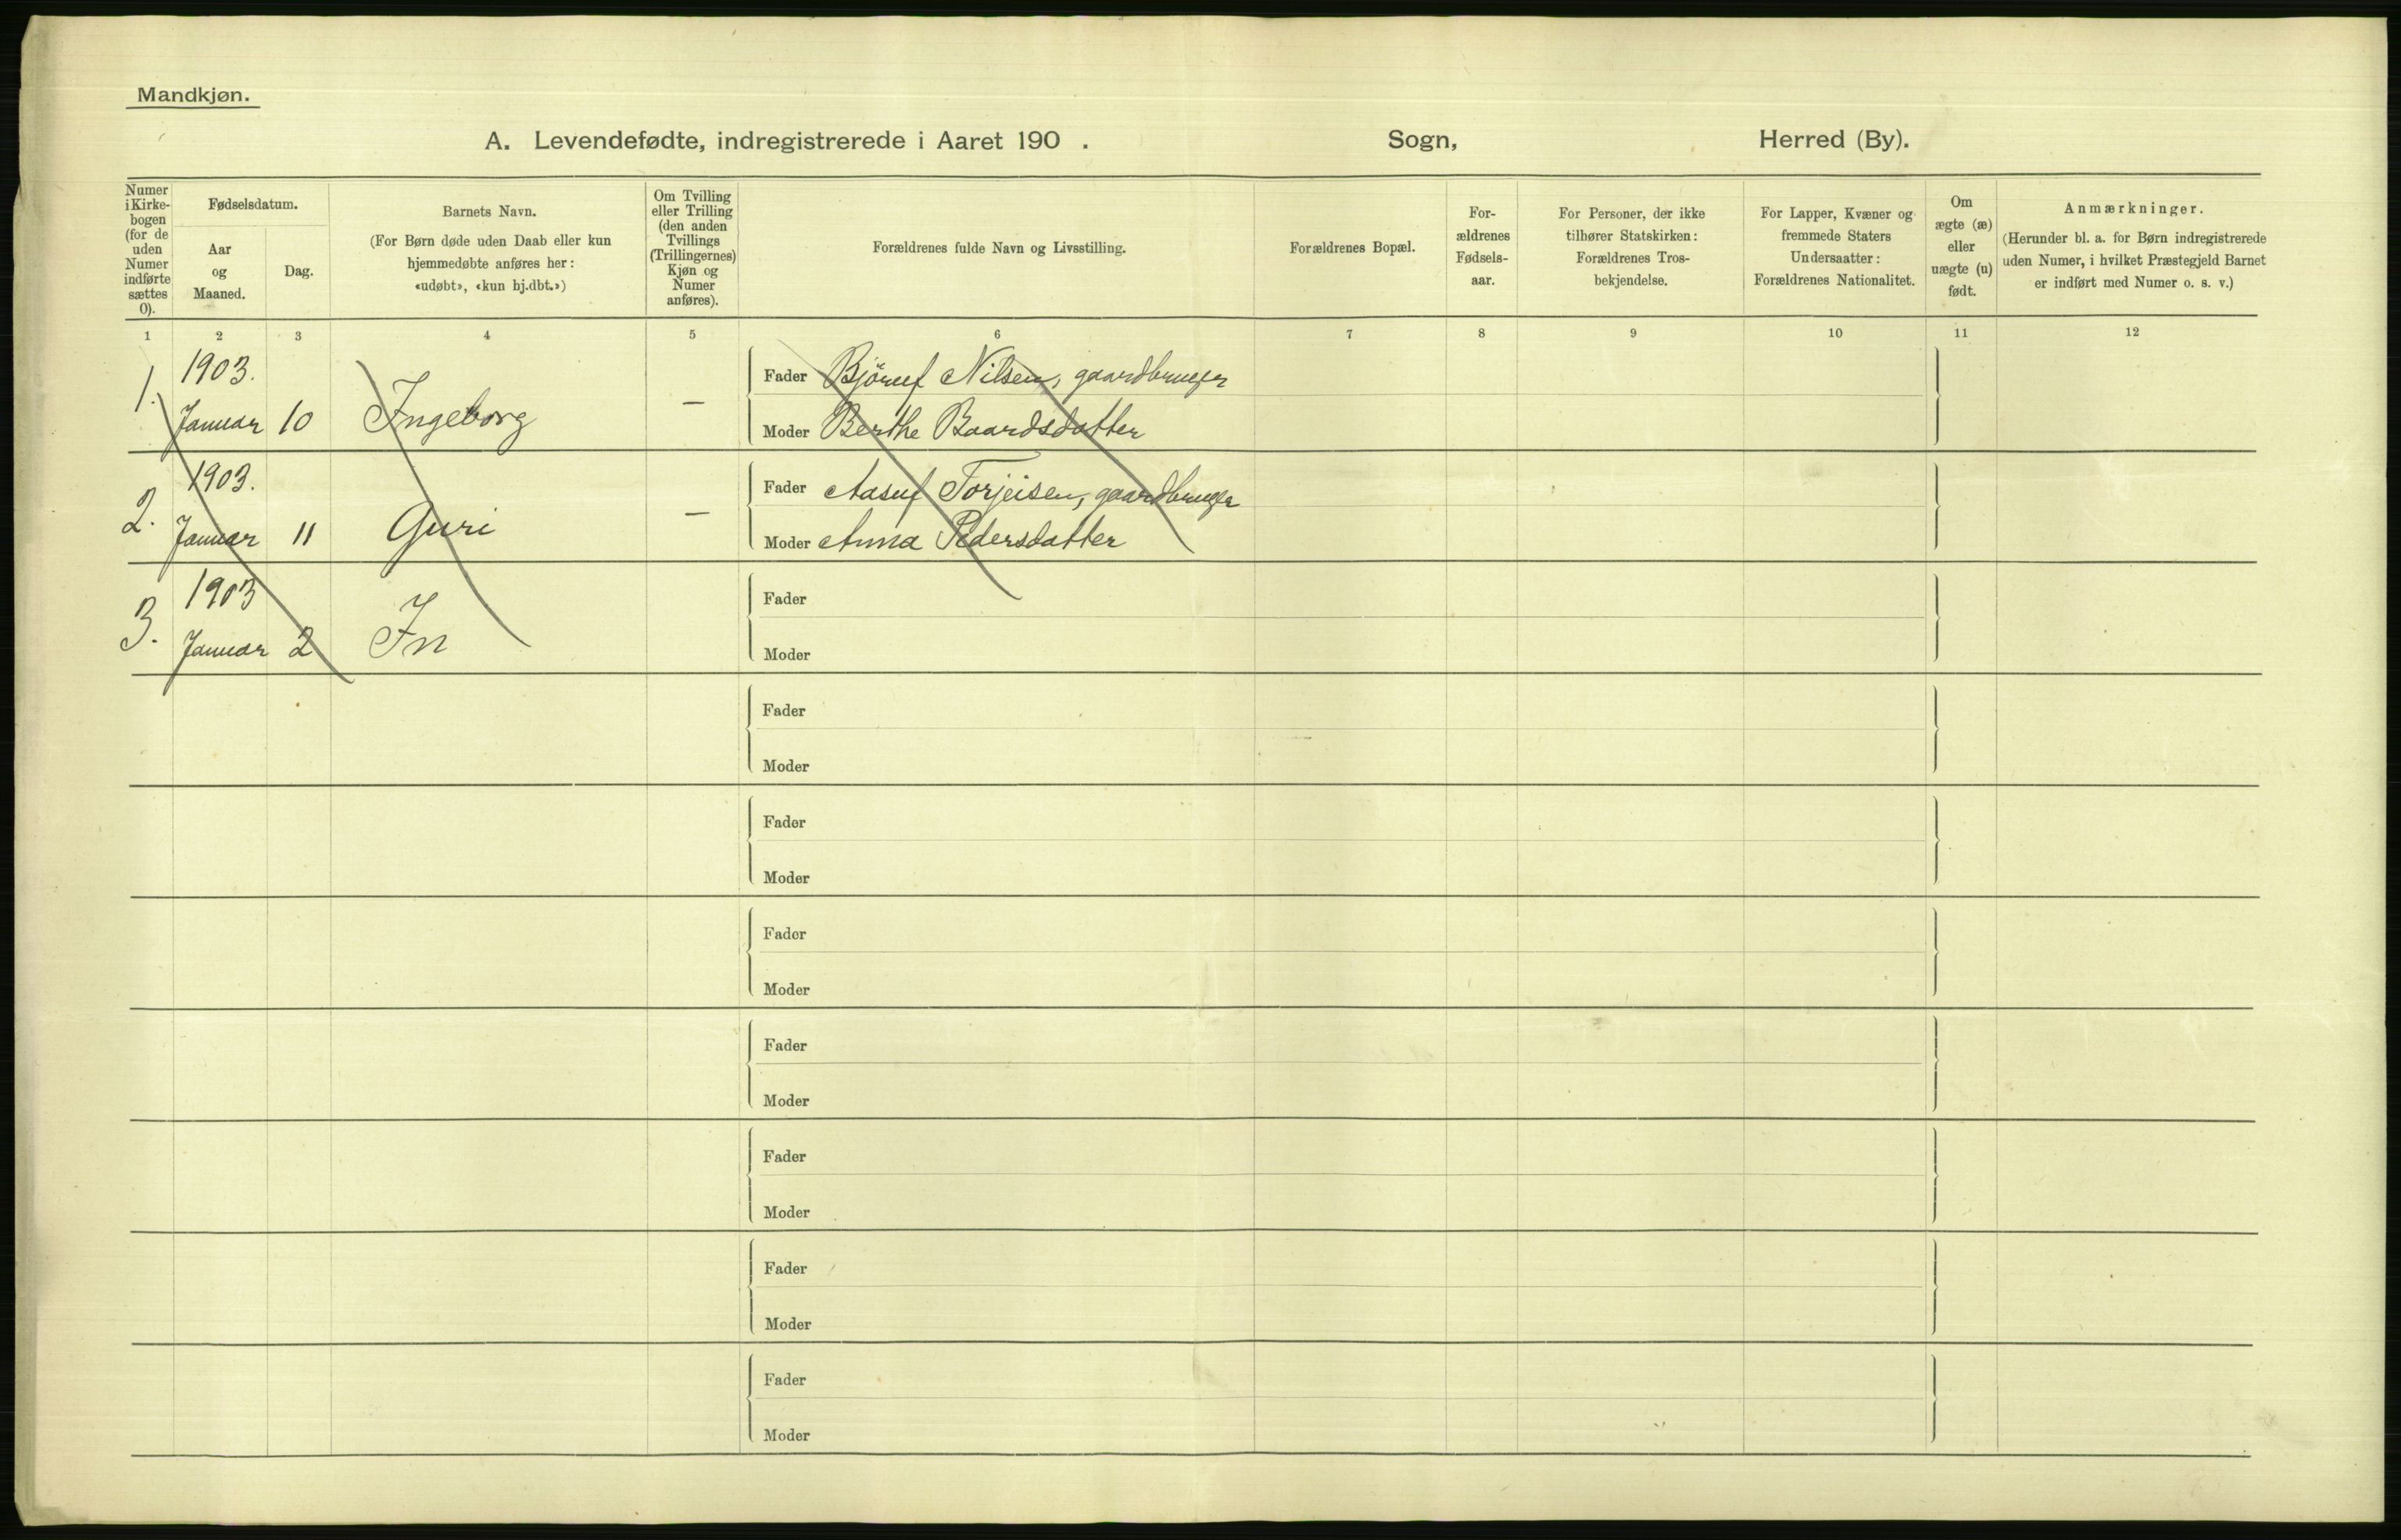 Mandkjøn.
A. Levendefødte, indregistrerede i Aaret 190 . Sogn, Herred (By).
Numer i Kirke-bogen (for de uden Numer indførte sættes 0).
Fødselsdatum.
Aar og Maaned.
Dag.
Barnets Navn.
(For Børn døde uden Daab eller kun
hjemmedøbte anføres her:
«udøbt», «kun hj.dbt.»)
Om Tvilling
eller Trilling
(den anden
Tvillings
(Trillingernes)
Kjøn og
Numer
anføres).
Forældrenes fulde Navn og Livsstilling.
Forældrenes Bopæl.
For-
ældrenes
Fødsels-
aar.
For Personer, der ikke
tilhører Statskirken:
Forældrenes Tros-
bekjendelse.
For Lapper, Kvæner og
fremmede Staters
Undersaatter:
Forældrenes Nationalitet.
Om
ægte (æ)
eller
uægte (u)
født.
Anmærkninger.
(Herunder bl. a. for Børn indregistrerede
uden Numer, i hvilket Præstegjeld Barnet
er indført med Numer o. s. v.)
1 2 3 4 5 6 7 8 9 10 11 12
1. 1903. Januar 10 Ingeborg — Fader Nilsen, gaardbruger
Moder Berthe Baardsdatter
2. 1903. Januar 11 Guri — Fader Torjeisen, gaardbruger
Moder Anna Pedersdatter
3. 1903 Januar 2 In Fader
Moder
Fader
Moder
Fader
Moder
Fader
Moder
Fader
Moder
Fader
Moder
Fader
Moder
Fader
Moder